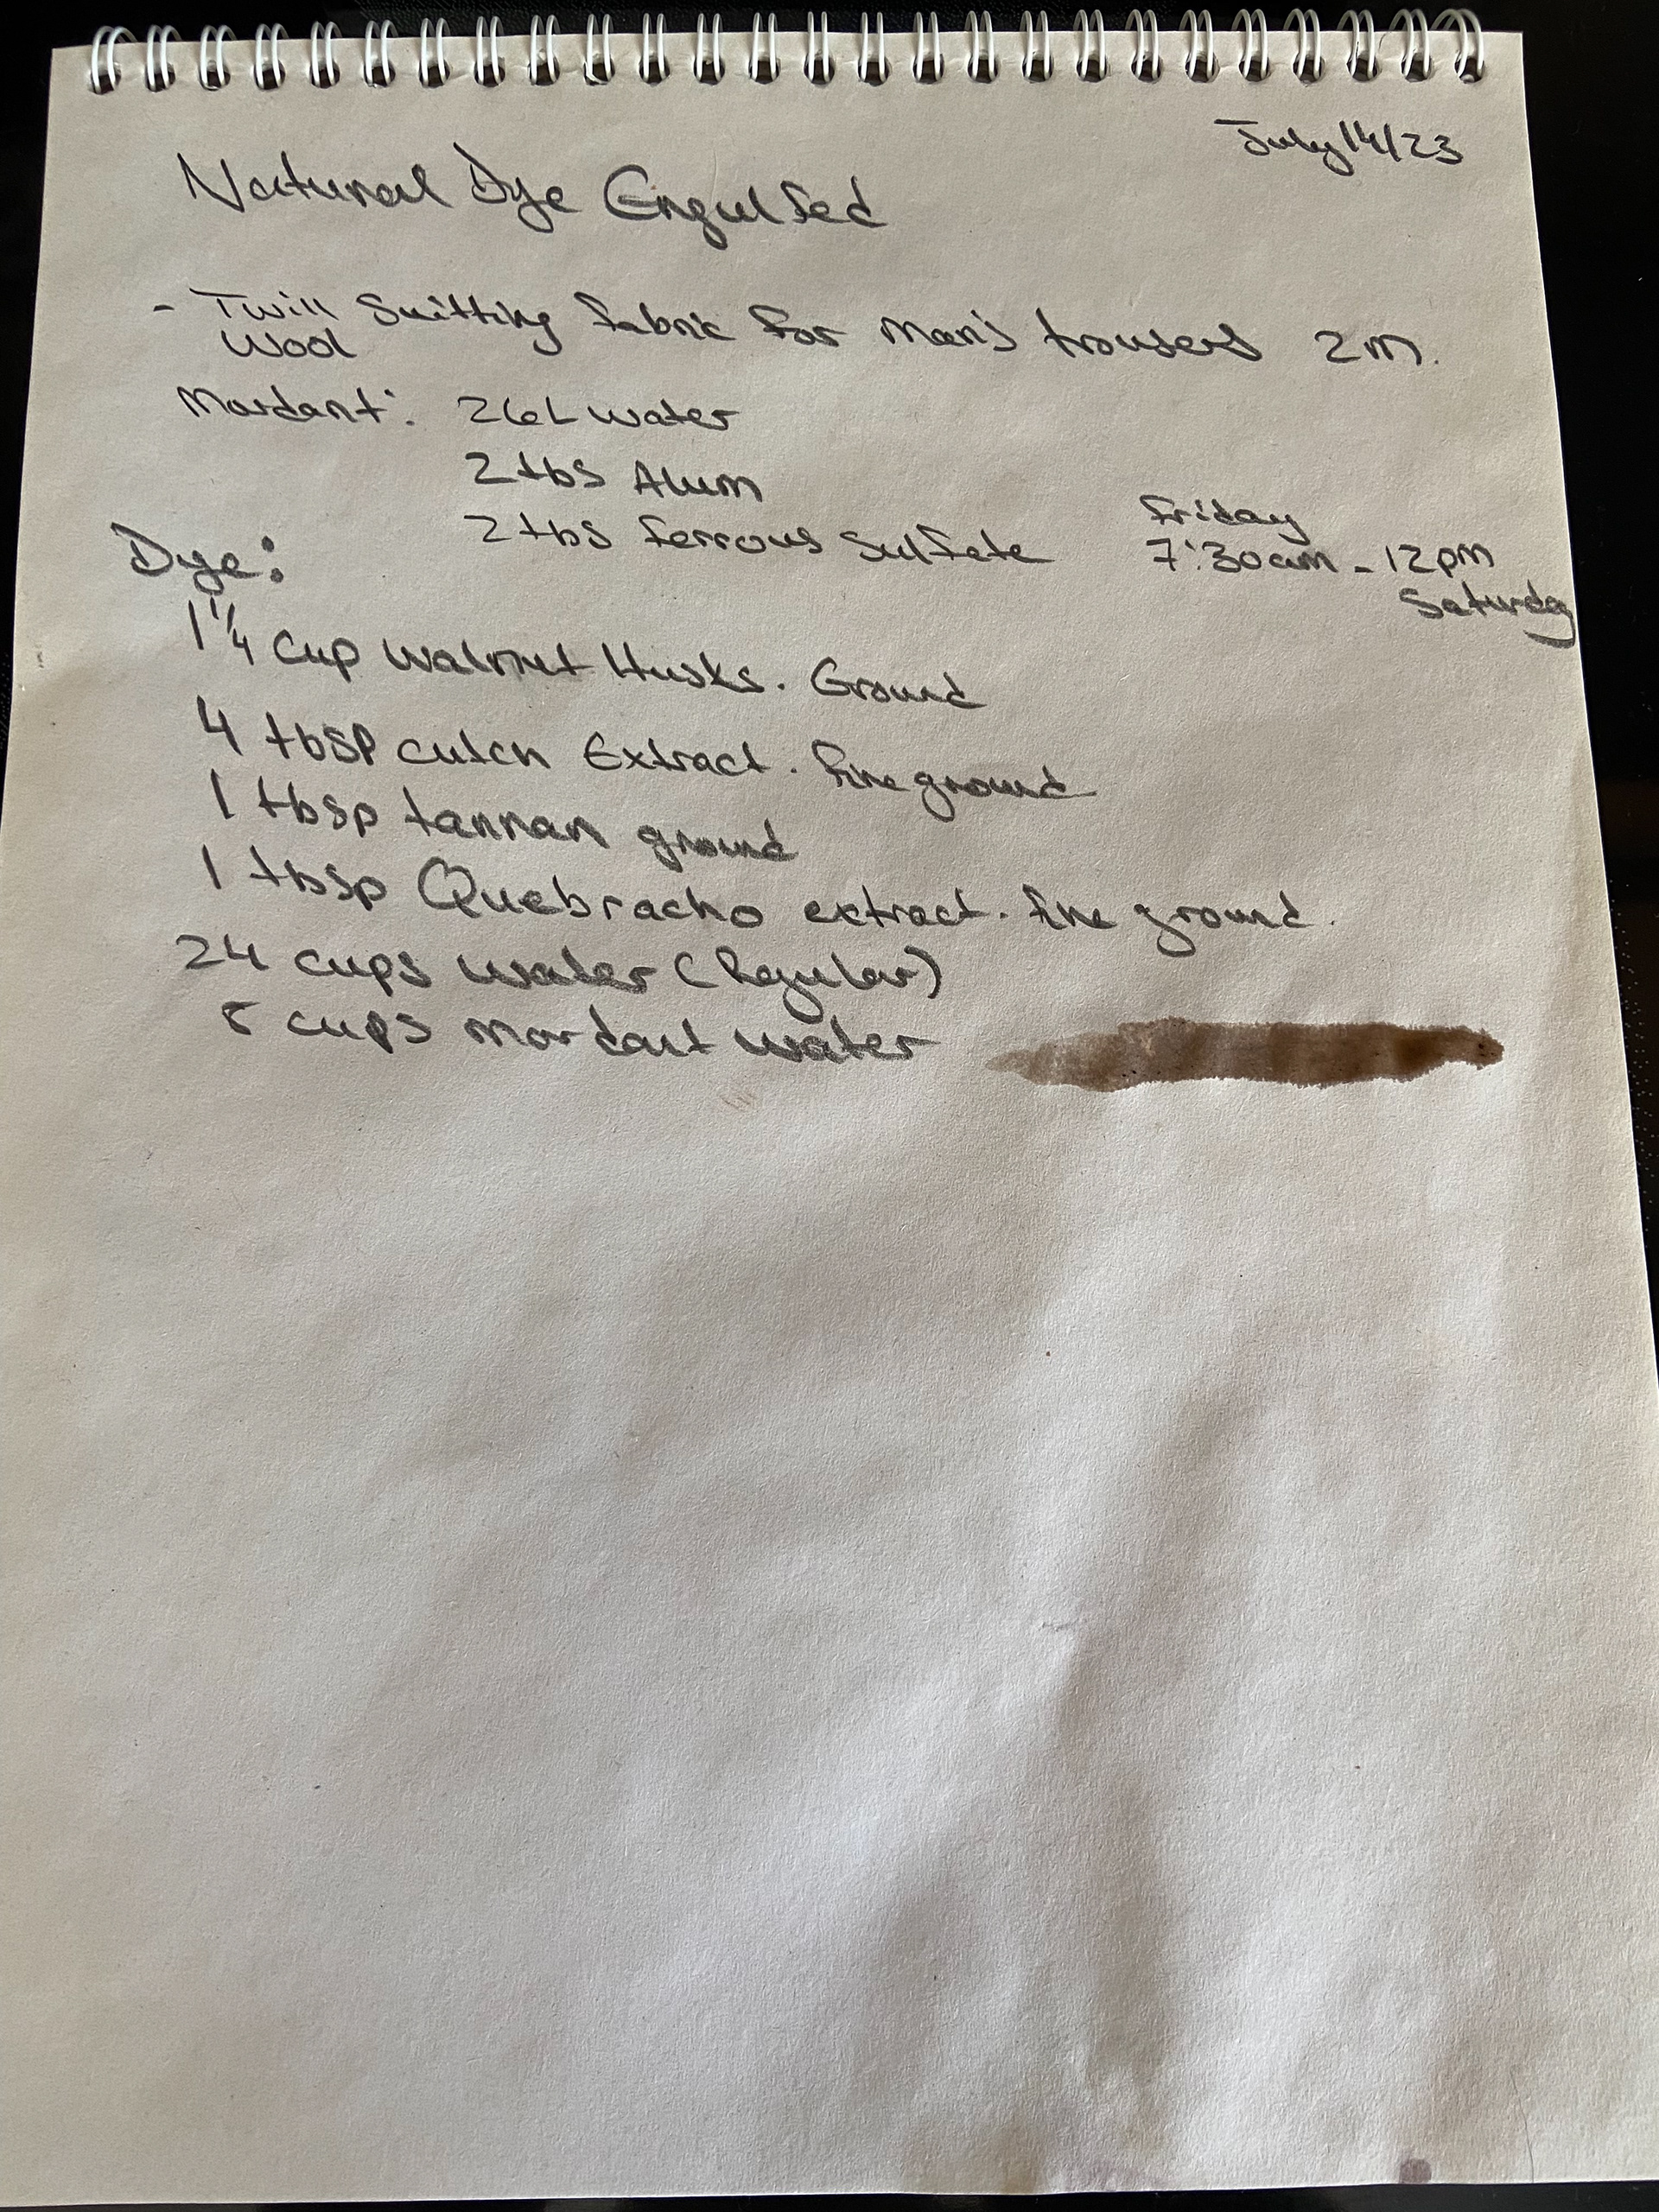 July 14/23
Natural Dye Engulfed
- Twill Suitting fabric for Man's trousers 2m.
Wool
Mordant: 26L water
2 tbs Alum
2 tbs ferrous Sulfate
Friday
7:30am - 12pm
Saturday
Dye:
1 1/4 Cup Walnut Husks. Ground
4 tbsp cutch Extract. fine ground
1 tbsp tannan ground
1 tbsp Quebracho extract. fine ground.
24 cups water (Regular)
cups Mordant water